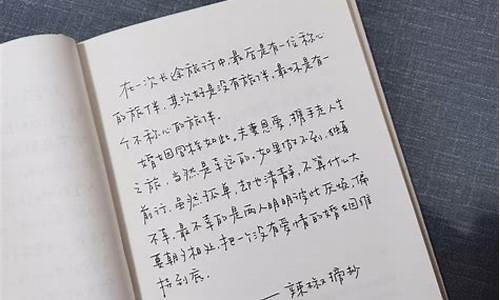 在一次长途旅行中,最后是有一位称心
的旅伴,其次好是没有旅伴,最坏是有一
个不称心的旅伴。
婚姻同样如此。夫妻恩爱,携手走人生
之旅,当然是幸运的。如果做不到,独自
前行,虽然孤单,却也清静,不算什么大
不幸。最不幸的是两人明明彼此厌烦,偏
要朝夕相处,把一个没有爱情的婚姻维
持到底。
—— 辣椒摘抄